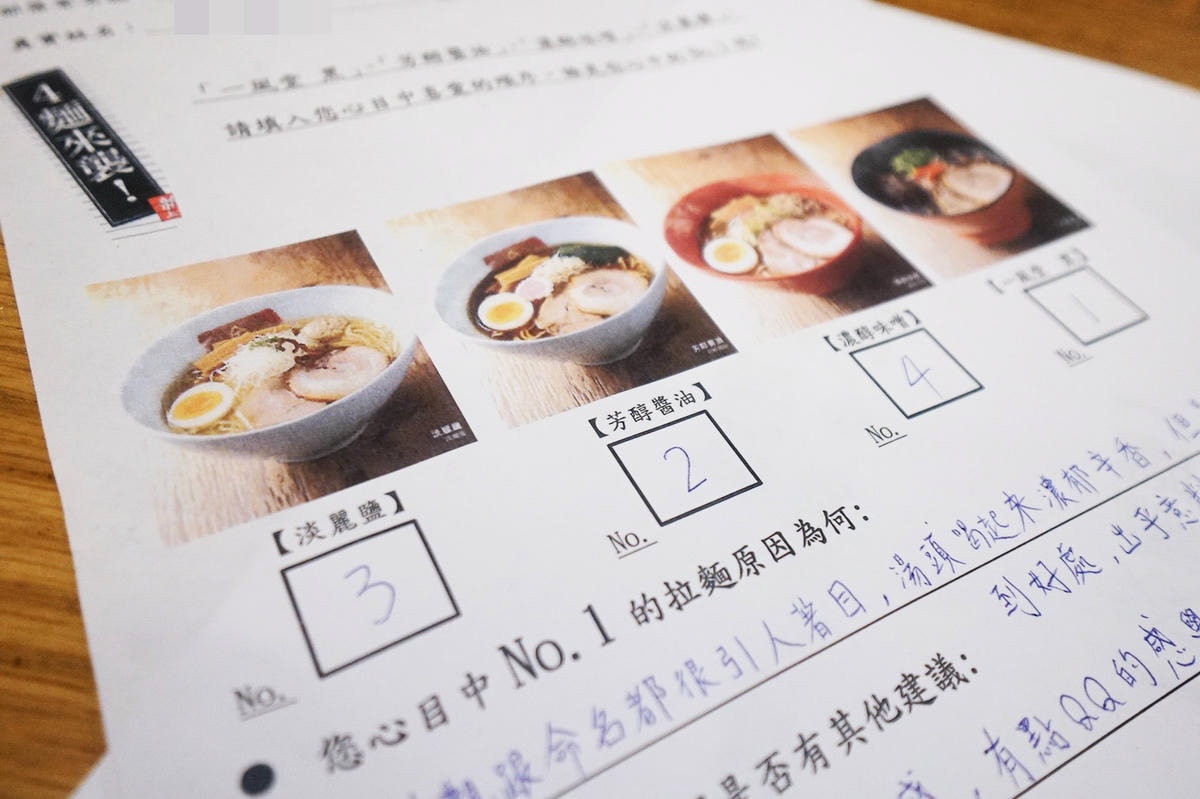 真實姓名：
4麵來襲！
「一風堂 黑」、「芳醇醬油」、「濃醇味噌」、「淡麗鹽」
請填入您心目中喜愛的順序，
【淡麗鹽】
3
No.
【芳醇醬油】
2
No.
【濃醇味噌】
4
No.
【一風堂 黑】
1
No.
您心目中 No.1 的拉麵原因為何：
跟命名都很引人著目，湯頭喝起來濃郁辛香，但
到好處，出乎意料
是否有其他建議：
有點QQ的感覺